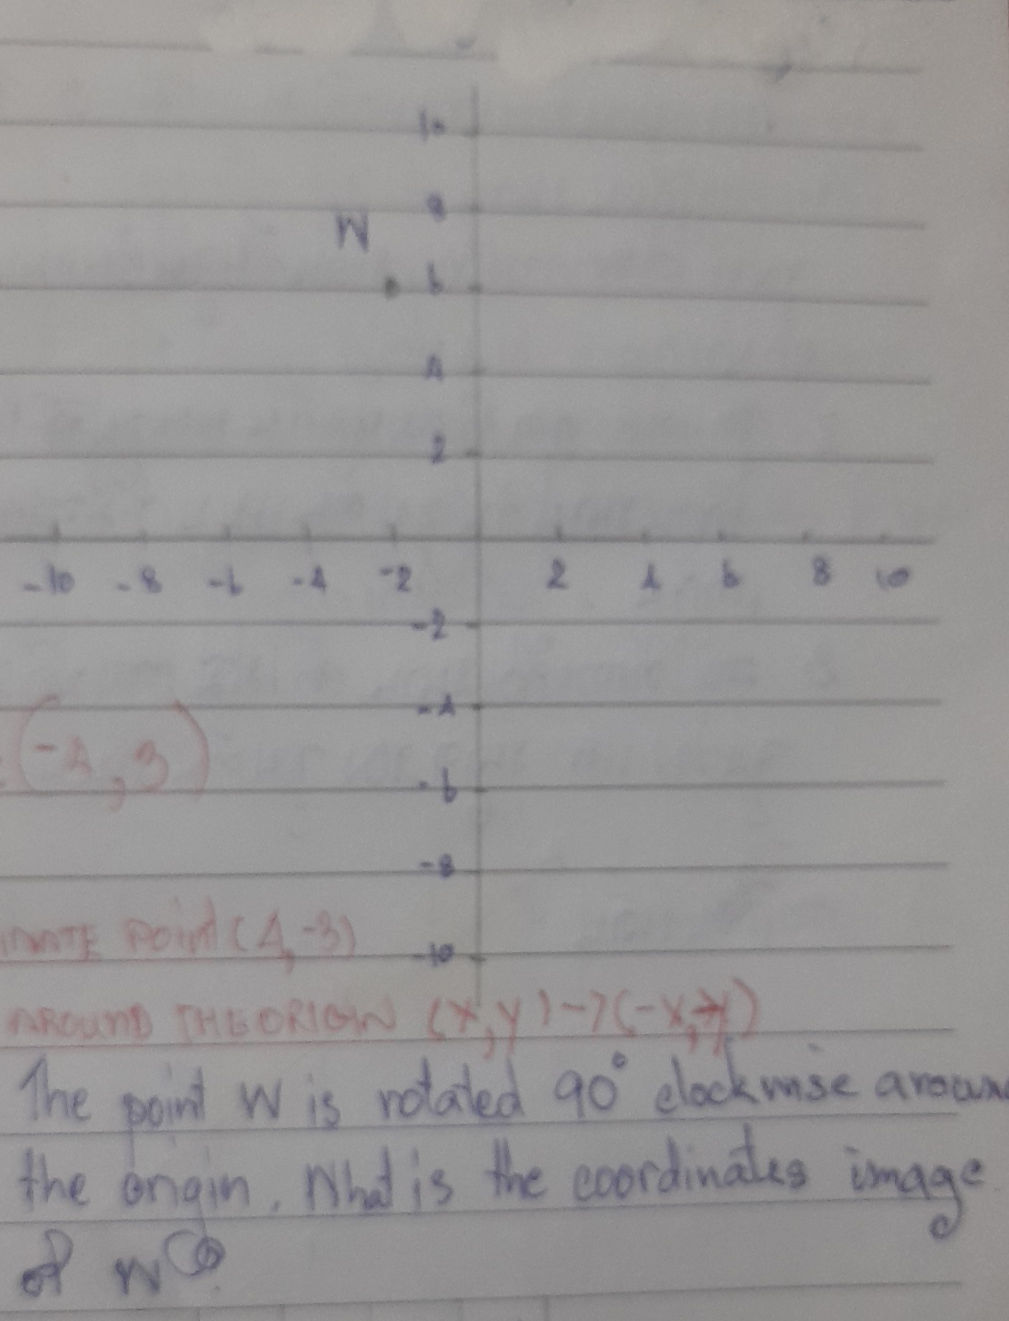 10
W
8
6
4
2
-10 -8 -6 -4 -2 2 4 6 8 10
-2
-4
(-4,3)
-6
-8
POINT (4,-3)
-10
AROUND THE ORIGIN (X,Y)->(-X,-Y)
The point W is rotated 90° clockwise aroun
the origin. What is the coordinates image
of W?